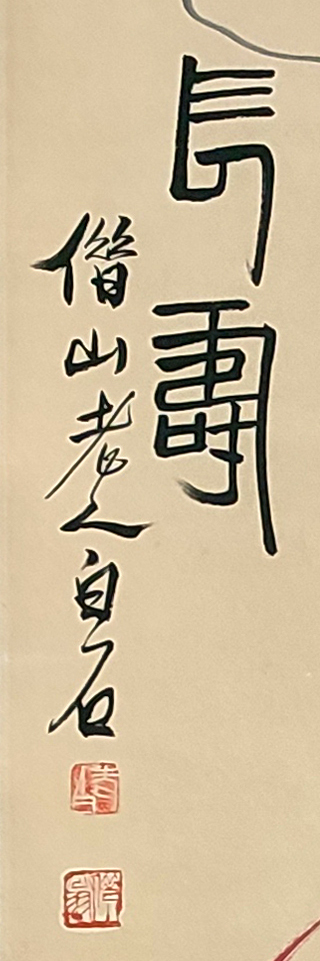 長壽
借山老人白石